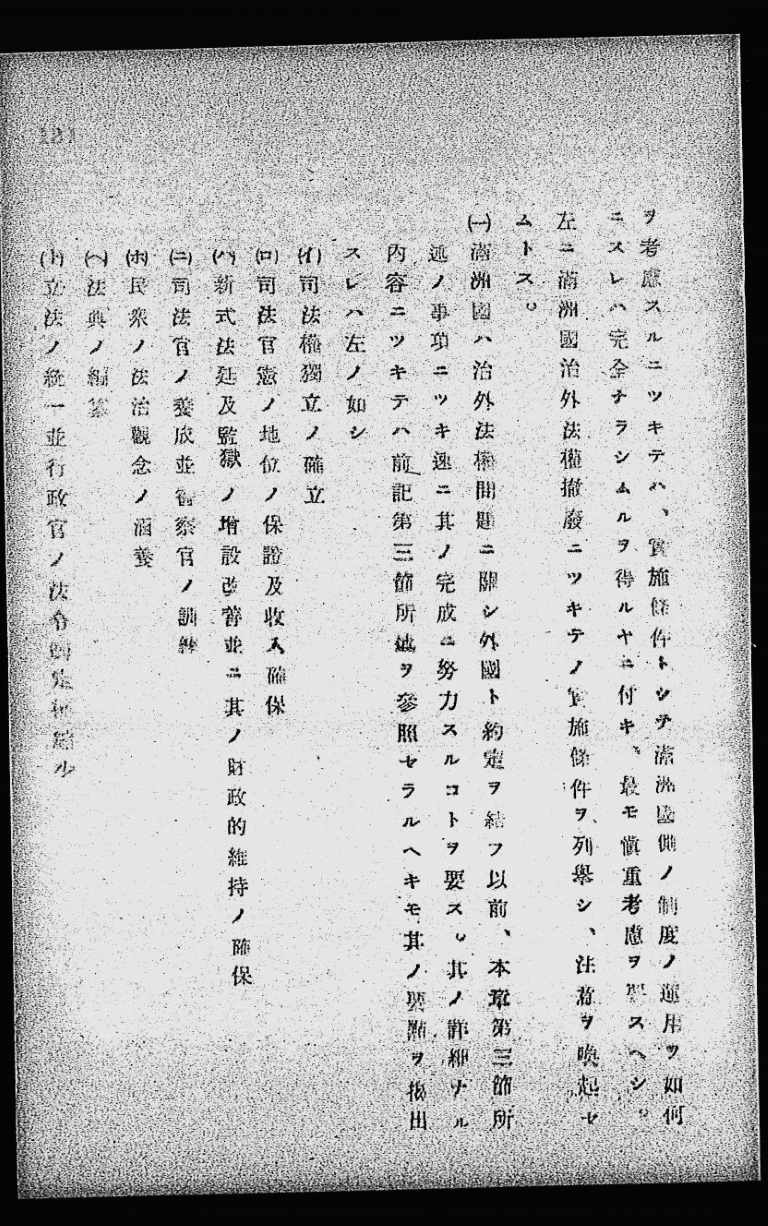 ヲ考慮スルニツキテハ、實施條件トシテ滿洲國側ノ制度ノ運用ヲ如何
ニスレハ完全ナラシムルヲ得ルヤニ付キ、最モ愼重考慮ヲ要スヘシ。
左ニ滿洲國治外法權撤廢ニツキテノ實施條件ヲ列擧シ、注意ヲ喚起セ
ムトス。
㈠滿洲國ハ治外法權問題ニ關シ外國ト約定ヲ結フ以前、本章第三節所
述ノ事項ニツキ速ニ其ノ完成ニ努力スルコトヲ要ス。其ノ詳細ナル
內容ニツキテハ前記第三節所述ヲ參照セラルヘキモ其ノ要點ヲ摘出
スレハ左ノ如シ
(イ)司法權獨立ノ確立
(ロ)司法官憲ノ地位ノ保證及收入確保
(ハ)新式法廷及監獄ノ增設改善並ニ其ノ財政的維持ノ確保
(ニ)司法官ノ養成並警察官ノ訓練
(ホ)民衆ノ法治觀念ノ涵養
(ヘ)法典ノ編纂
(ト)立法ノ統一並行政官ノ法令制定權縮少